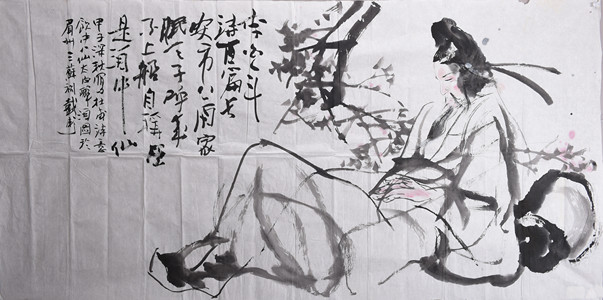 李白一斗
诗百篇长
安市上酒家
眠天子呼来
不上船自称臣
是酒中仙
甲子深秋写杜甫诗意
饮中八仙太白醉酒图于
眉州三苏祠戴卫